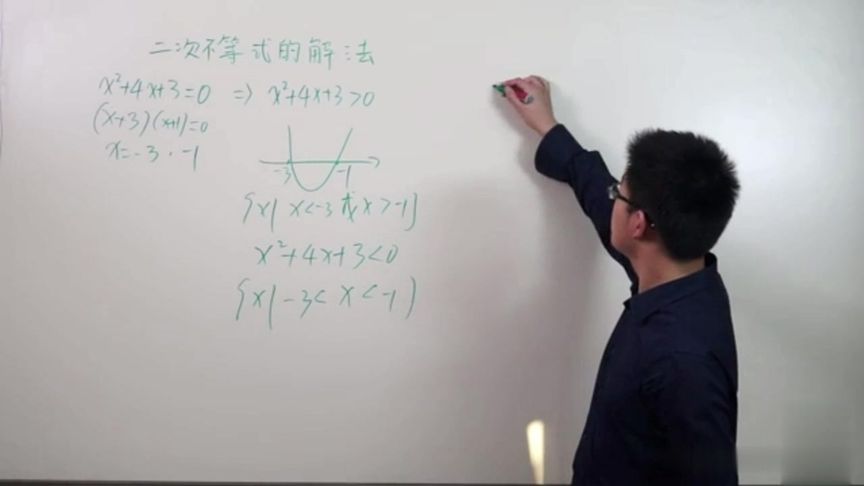 二次不等式的解法
x²+4x+3=0 ⇒ x²+4x+3>0
(x+3)(x+1)=0
x=-3·-1
-3 -1
{x| x<-3或x>-1}
x²+4x+3<0
{x|-3< x<-1}